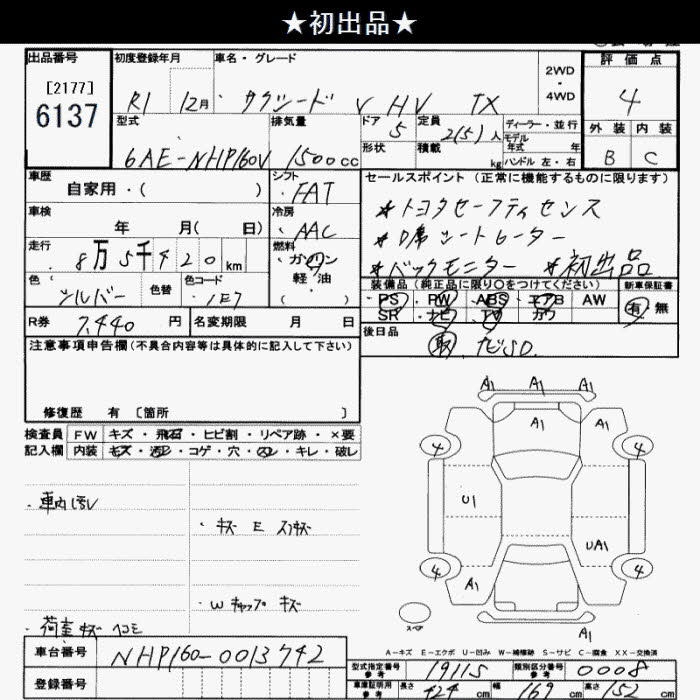 ★初出品★
出品番号 初度登録年月 車名・グレード 2WD・4WD 評価点
[2177]
6137
R1 12月 サクシード V HV TX 4
型式 排気量 ドア 定員 ディーラー・並行 外装 内装
6AE-NHP160V 1500cc 5 2(5)人 モデル年式 年
形状 積載 kg ハンドル 左・右 B C
車歴 シフト セールスポイント(正常に機能するものに限ります)
自家用・( ) FAT
＊トヨタセーフティセンス
車検 冷房
年 月( 日) AAC
＊D席シートヒーター
走行 燃料
8万5千420km ガソリン
軽油
( )
＊バックモニター ＊初出品
色 色替 色コード
シルバー 1E7
装備品(純正品に限り○をつけてください) 新車保証書
PS・PW・ABS・エアB AW 有・無
SR・ナビ・TV カワ
R券 7,440円 名変期限 月 日
後日品
取 ナビSD.
注意事項申告欄(不具合内容等は具体的に記入して下さい)
修復歴 有 〔箇所 〕
検査員 FW キズ・飛石・ヒビ割・リペア跡・×要
記入欄 内装 キズ・汚レ・コゲ・穴・スレ・キレ・破レ
・車内汚レ
・キズ E スリキズ
・Wキャップ キズ
・荷室キズ ヘコミ
A1 A1 A1
A1 A1
4 4
U1
UA1
4 4
A1
スペア
A1
A-キズ E-エクボ U-凹み W-補修跡 S-サビ C-腐食 XX-交換済
車台番号 NHP160-0013742
登録番号
型式指定番号 参考 19115 類別区分番号 参考 0008
車庫証明用 参考 長さ 424cm 幅 169cm 高さ 152cm